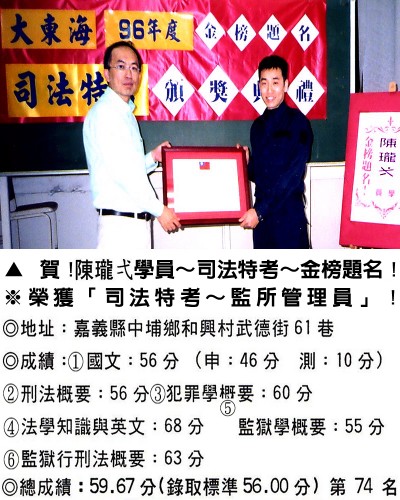 大東海 96年度 金榜題名
司法特 頒獎典禮
陳瓏弍
學員
金榜題名!
▲ 賀!陳瓏弍學員~司法特考~金榜題名!
※榮獲「司法特考~監所管理員」!
◎地址:嘉義縣中埔鄉和興村武德街61巷
◎成績:①國文:56分 (申:46分 測:10分)
②刑法概要:56分③犯罪學概要:60分
④法學知識與英文:68分 ⑤監獄學概要:55分
⑥監獄行刑法概要:63分
◎總成績:59.67分(錄取標準56.00分) 第74名